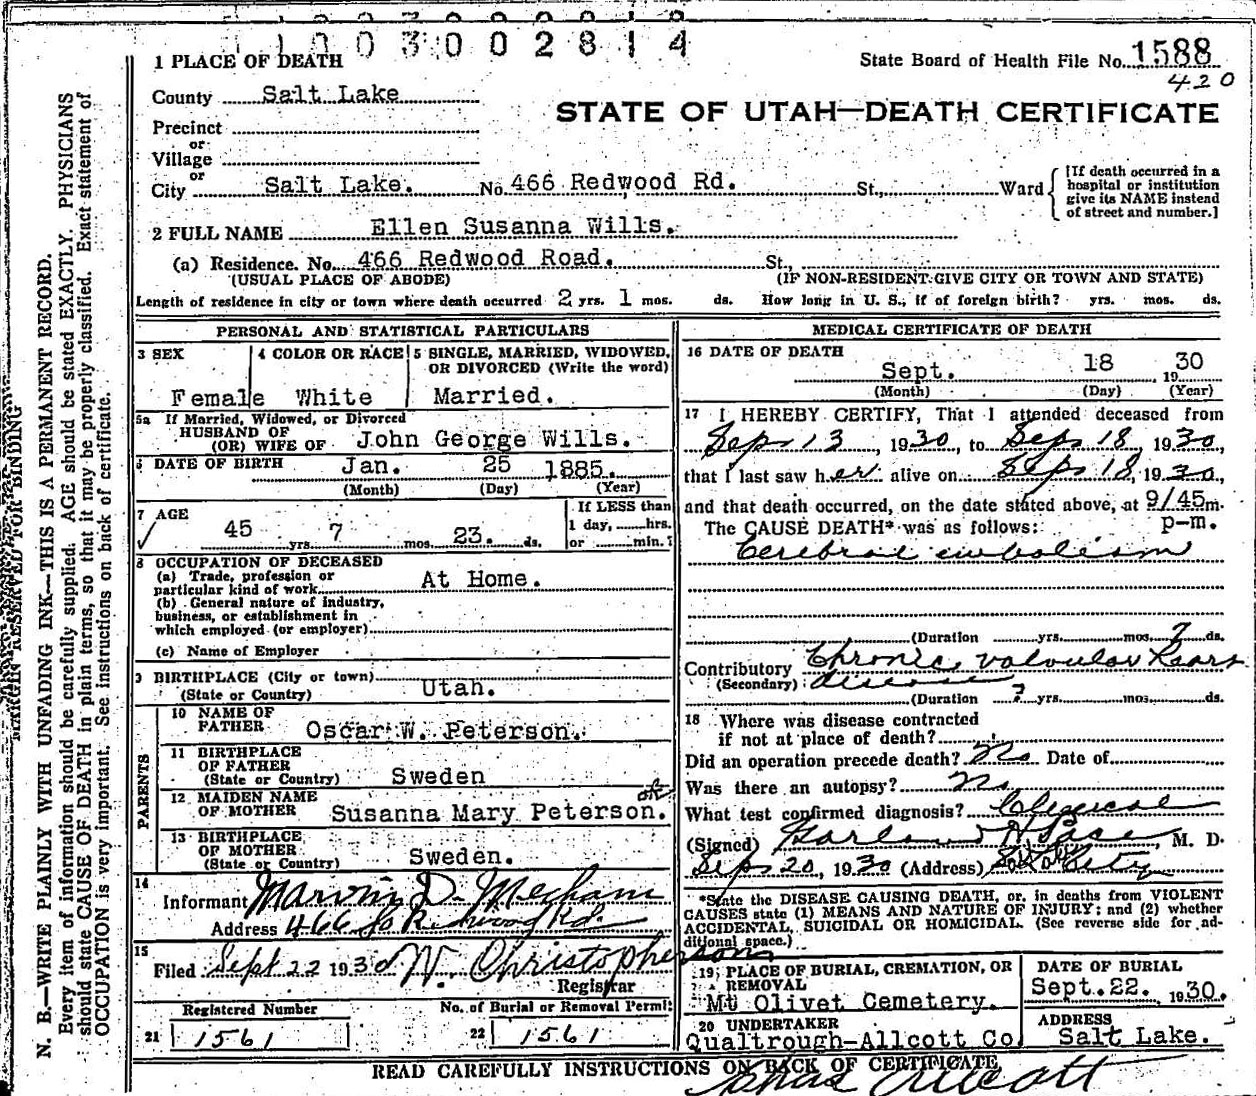 10030002814
1 PLACE OF DEATH
State Board of Health File No. 1588
420
County Salt Lake
STATE OF UTAH—DEATH CERTIFICATE
Precinct
or
Village
or
City Salt Lake. No. 466 Redwood Rd. St., Ward
[If death occurred in a hospital or institution give its NAME instead of street and number.]
2 FULL NAME Ellen Susanna Wills.
(a) Residence. No. 466 Redwood Road. St.,
(USUAL PLACE OF ABODE) (IF NON-RESIDENT GIVE CITY OR TOWN AND STATE)
Length of residence in city or town where death occurred 2 yrs. 1 mos. ds. How long in U. S., if of foreign birth? yrs. mos. ds.
PERSONAL AND STATISTICAL PARTICULARS
3 SEX 4 COLOR OR RACE 5 SINGLE, MARRIED, WIDOWED,
OR DIVORCED (Write the word)
Female White Married.
5a If Married, Widowed, or Divorced
HUSBAND OF
(OR) WIFE OF John George Wills.
6 DATE OF BIRTH Jan. 25 1885.
(Month) (Day) (Year)
7 AGE 45 yrs. 7 mos. 23. ds.
If LESS than
1 day, hrs.
or min.?
8 OCCUPATION OF DECEASED
(a) Trade, profession or
particular kind of work At Home.
(b) General nature of industry,
business, or establishment in
which employed (or employer)
(c) Name of Employer
9 BIRTHPLACE (City or town)
(State or Country) Utah.
PARENTS
10 NAME OF
FATHER Oscar W. Peterson.
11 BIRTHPLACE
OF FATHER
(State or Country) Sweden
12 MAIDEN NAME
OF MOTHER Susanna Mary Peterson.
13 BIRTHPLACE
OF MOTHER
(State or Country) Sweden.
14
Informant Marvin D. Mecham
Address 466 So Redwood Rd.
15
Filed Sept 22 1930 W. Christopherson
Registrar
Registered Number No. of Burial or Removal Permit
21 1561 22 1561
MEDICAL CERTIFICATE OF DEATH
16 DATE OF DEATH
Sept. 18 1930
(Month) (Day) (Year)
17 I HEREBY CERTIFY, That I attended deceased from
Sept 13 1930, to Sept 18, 1930,
that I last saw her alive on Sept 18, 1930,
and that death occurred, on the date stated above, at 9/45m.
The CAUSE DEATH* was as follows: p-m.
Cerebral embolism
(Duration yrs. mos. 7 ds.
Contributory Chronic valvular heart
(Secondary) disease
(Duration ? yrs. mos. ds.
18 Where was disease contracted
if not at place of death?
Did an operation precede death? No Date of
Was there an autopsy? No
What test confirmed diagnosis? Clinical
(Signed) Garland H. Pace, M. D.
Sept 20, 1930 (Address) City
*State the DISEASE CAUSING DEATH, or, in deaths from VIOLENT
CAUSES state (1) MEANS AND NATURE OF INJURY; and (2) whether
ACCIDENTAL, SUICIDAL OR HOMICIDAL. (See reverse side for ad-
ditional space.)
19 PLACE OF BURIAL, CREMATION, OR
REMOVAL
Mt Olivet Cemetery.
DATE OF BURIAL
Sept. 22. 1930.
20 UNDERTAKER
Qualtrough-Allcott Co
ADDRESS
Salt Lake.
READ CAREFULLY INSTRUCTIONS ON BACK OF CERTIFICATE
Chas Allcott
MARGIN RESERVED FOR BINDING
N. B.—WRITE PLAINLY WITH UNFADING INK—THIS IS A PERMANENT RECORD.
Every item of information should be carefully supplied. AGE should be stated EXACTLY. PHYSICIANS
should state CAUSE OF DEATH in plain terms, so that it may be properly classified. Exact statement of
OCCUPATION is very important. See instructions on back of certificate.